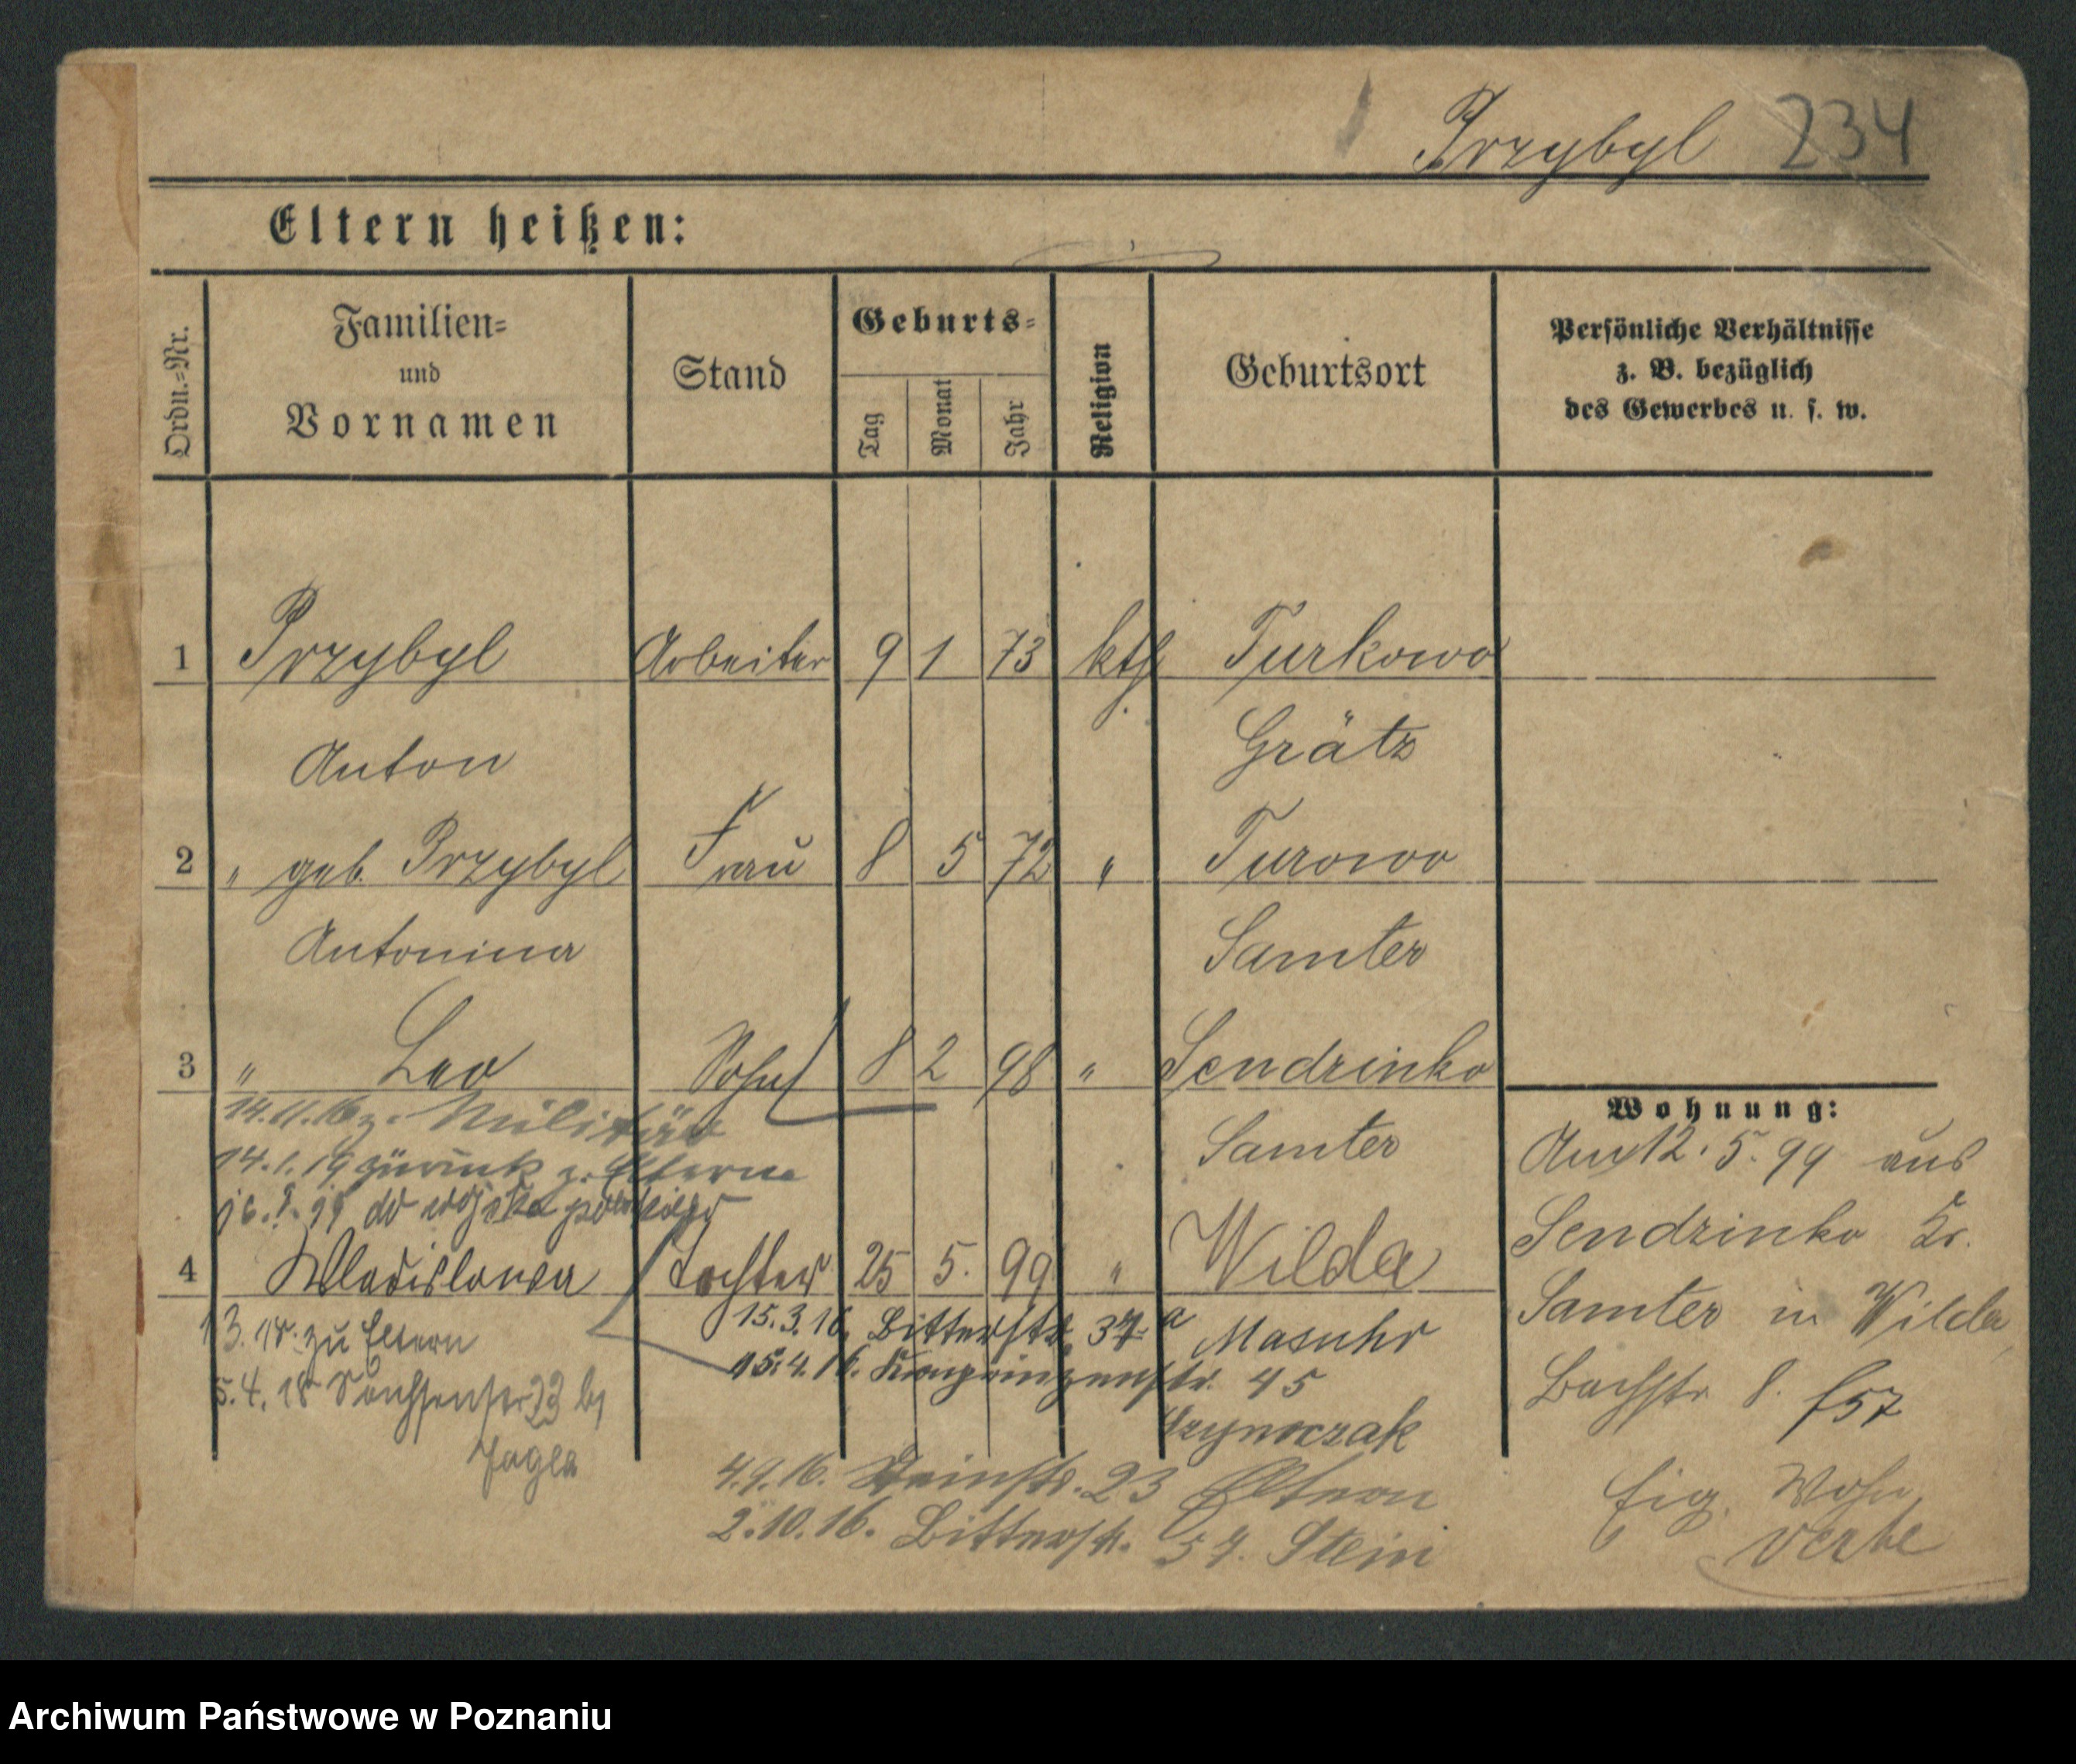 Przybyl 234
Eltern heißen:
Ordn.=Nr.
Familien=
und
Vornamen
Stand
Geburts=
Tag
Monat
Jahr
Religion
Geburtsort
Persönliche Verhältnisse
z. B. bezüglich
des Gewerbes u. s. w.
1 Przybyl Arbeiter 9 1 73 kth. Turkowo
Anton Grätz
2 " geb. Przybyl Frau 8 5 72 " Turowo
Antonina Samter
3 " Leo Sohn 8 2 98 " Sendzinko
14.11.16 z. Militär Samter
14.1.19 zurück z. Eltern
do wojska polskiego
4 Wladislawa Tochter 25 5. 99 " Wilda
15.3.16. Bitterstr. 37a Masuhr
3.18. zu Eltern
15.4.16. Kronprinzenstr. 45
5.4.18 23 b/
Jagla
4.9.16. 23 Eltern
2.10.16. Bitterstr. 37. Stein
Wohnung:
Am 12.5.99 aus
Sendzinko Kr.
Samter in Wilda
Bachstr 8. f57
Eig. Wohn
Archiwum Państwowe w Poznaniu